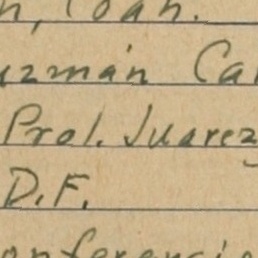 n, Coah.
uzmán Ca
Prol. Juarez
D.F.
onferencia